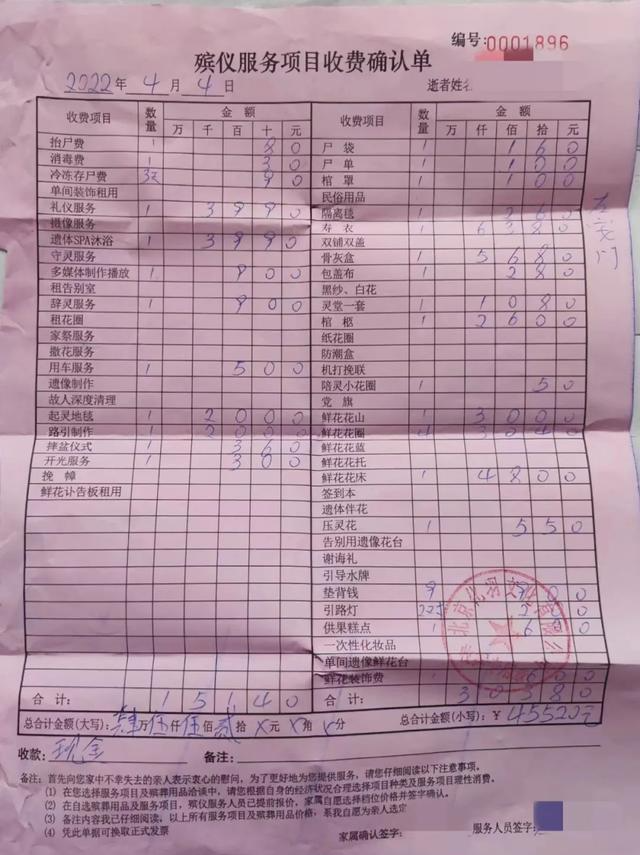 编号:0001896
殡仪服务项目收费确认单
2022年4月4日 逝者姓名
收费项目 数量 金额 万 千 百 十 元
抬尸费 1 80
消毒费 1 30
冷冻存尸费 3天 90
单间装饰租用
礼仪服务 1 3990
摄像服务
遗体SPA沐浴 1 3990
守灵服务
多媒体制作播放 1 900
租告别室
辞灵服务 1 900
租花圈
家祭服务
撒花服务
用车服务 1 500
遗像制作
故人深度清理
起灵地毯 1 2000
路引制作 1 2000
摔盆仪式 1 360
开光服务 1 300
挽幛
鲜花讣告板租用
合计: 15140
收费项目 数量 金额 万 仟 佰 拾 元
尸袋 1 160
尸单 1 100
棺罩 1 100
民俗用品
隔离毯 1 260
寿衣 1 6380
双铺双盖
骨灰盒 1 5680
包盖布 1 280
黑纱、白花
灵堂一套 1 1080
棺柩 1 2600
纸花圈
防潮盒
机打挽联
陪灵小花圈 1 50
党旗
鲜花花山 1 3000
鲜花花圈 4 3040
鲜花花蓝
鲜花花托
鲜花花床 1 4800
签到本
遗体伴花
压灵花 1 550
告别用遗像花台
谢诲礼
引导水牌
垫背钱 9 900
引路灯
供果糕点 1 600
一次性化妆品
单间遗像鲜花台
鲜花装饰费
合计: 30380
总合计金额(大写): 肆万伍仟伍佰贰拾X元X角X分 总合计金额(小写):¥45520元
收款: 现金 备注:
备注:首先向您家中不幸失去的亲人表示衷心的慰问,为了更好地为您提供服务,请您仔细阅读以下注意事项。
(1) 在您选择服务项目及殡葬用品洽谈中,请您根据自身的经济状况合理选择项目种类及服务项目理性消费。
(2) 在自选殡葬用品及服务项目,殡仪服务人员已提前报价,家属自愿选择档位价格并签字确认。
(3) 备注内容我已仔细阅读,以上所有服务项目及殡葬用品价格,系我自愿为亲人选定
(4) 凭此单据可换取正式发票
家属确认签字: 服务人员签字: